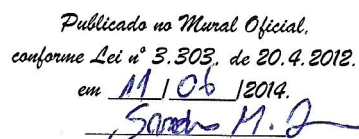 Publicado no Mural Oficial,
conforme Lei nº 3.303, de 20.4.2012.
em 11 / 06 /2014.